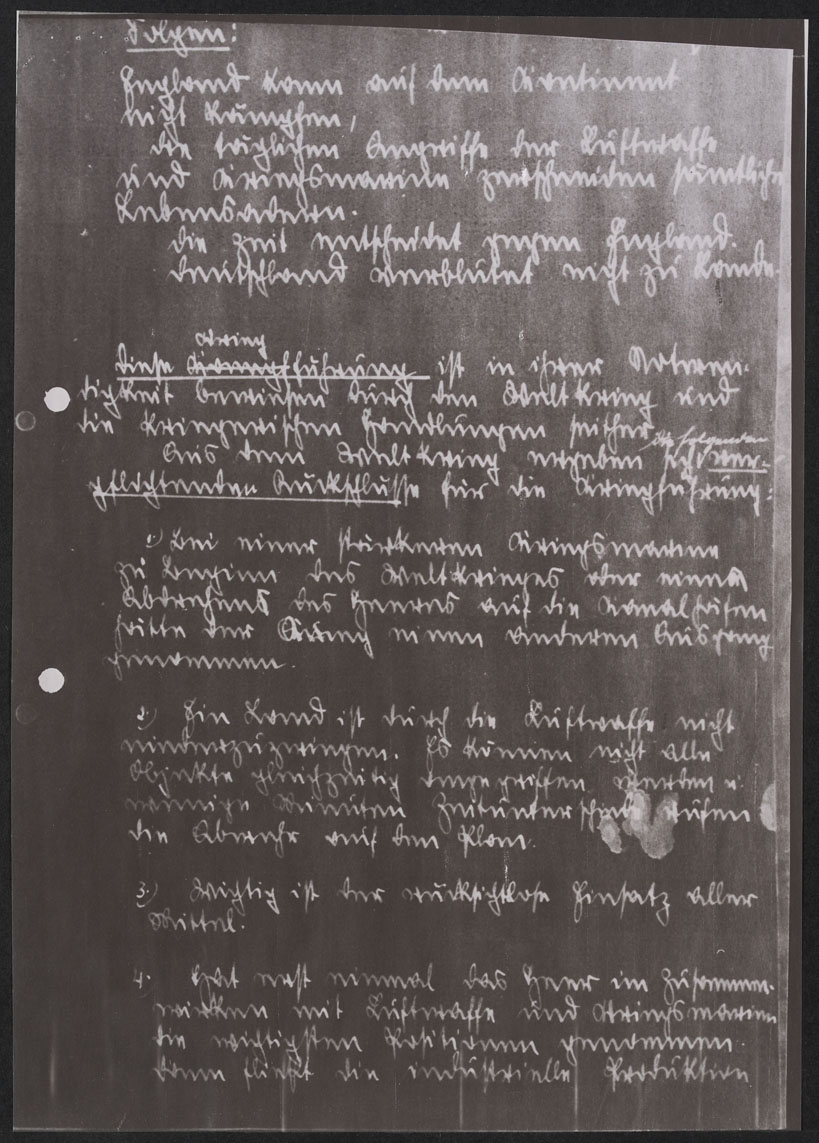 Folgen:
England kann auf dem Kontinent
nicht kämpfen,
die täglichen Angriffe der Luftwaffe
und Kriegsmarine zerschneiden sämtliche
Lebensadern.
Die Zeit entscheidet gegen England.
Deutschland verblutet nicht zu Lande.
Krieg
Diese führung ist in ihrer Notwen-
digkeit bewiesen durch den Weltkrieg und
die kriegerischen Handlungen seither.
die folgenden
Aus dem Weltkrieg ergeben sich ver-
pflichtenden Rückschlüsse für die Kriegführung:
1) Bei einer stärkeren Kriegsmarine
zu Beginn des Weltkrieges oder eines
Abdrehens des Heeres auf die Kanalhäfen
hätte der Krieg einen anderen Ausgang
genommen.
2) Ein Land ist durch die Luftwaffe nicht
niederzuzwingen. Es können nicht alle
Objekte gleichzeitig angegriffen werden u.
wenige Minuten Zeitunterschied rufen
die Abwehr auf den Plan.
3.) Wichtig ist der rücksichtlose Einsatz aller
Mittel.
4. Hat erst einmal das Heer im Zusammen-
wirken mit Luftwaffe und Kriegsmarine
die wichtigsten Positionen genommen
dann fließt die industrielle Produktion